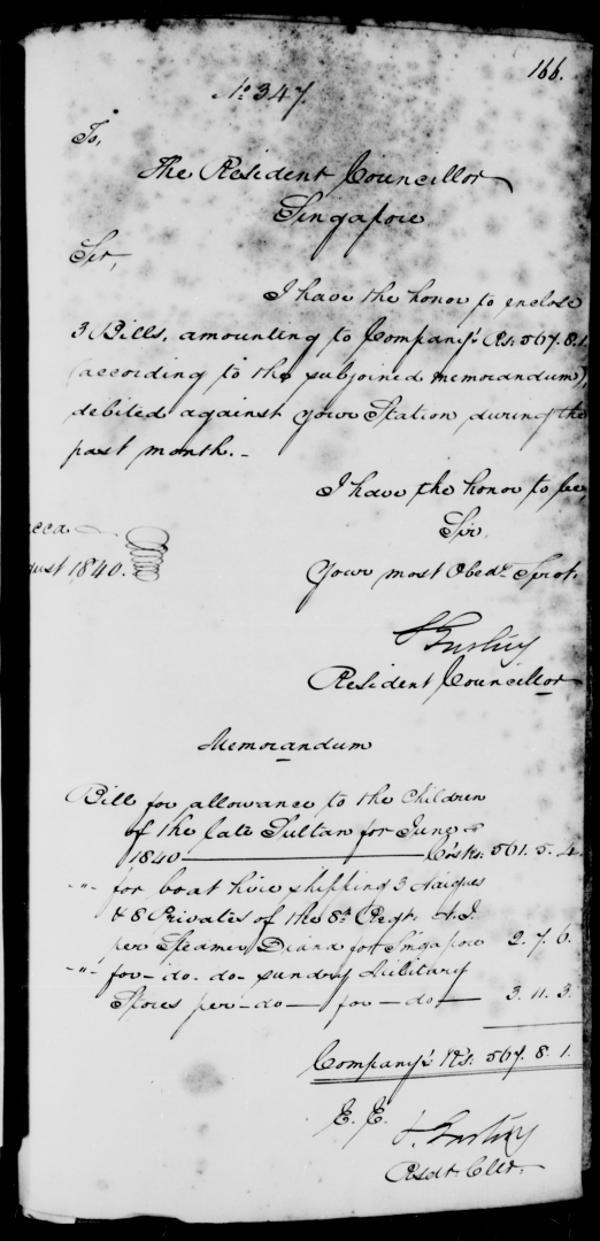 166.
No. 347.
To,
The Resident Councillor
Singapore
Sir,
I have the honor to enclose
3 Bills, amounting to Company's Rs. 567.8.1.
(according to the subjoined memorandum),
debited against your Station during the
past month. -
I have the honor to be,
Sir,
Your most Obedt. Servt.
acca
gust 1840.
Resident Councillor
Memorandum
Bill for allowance to the Children
of the late Sultan for June
1840 — Co's Rs. 561. 5. 4.
-"- for boat hire shipping 3 Naiques
& 8 Privates of the 8th Regt. N.I.
per Steamer Diana for Singapore 2. 7. 6.
-"- for - do. do - sundry Military
Stores per - do — for - do — 3. 11. 3.
Company's Rs. 567. 8. 1.
E. E.
Resdt. Cllr.